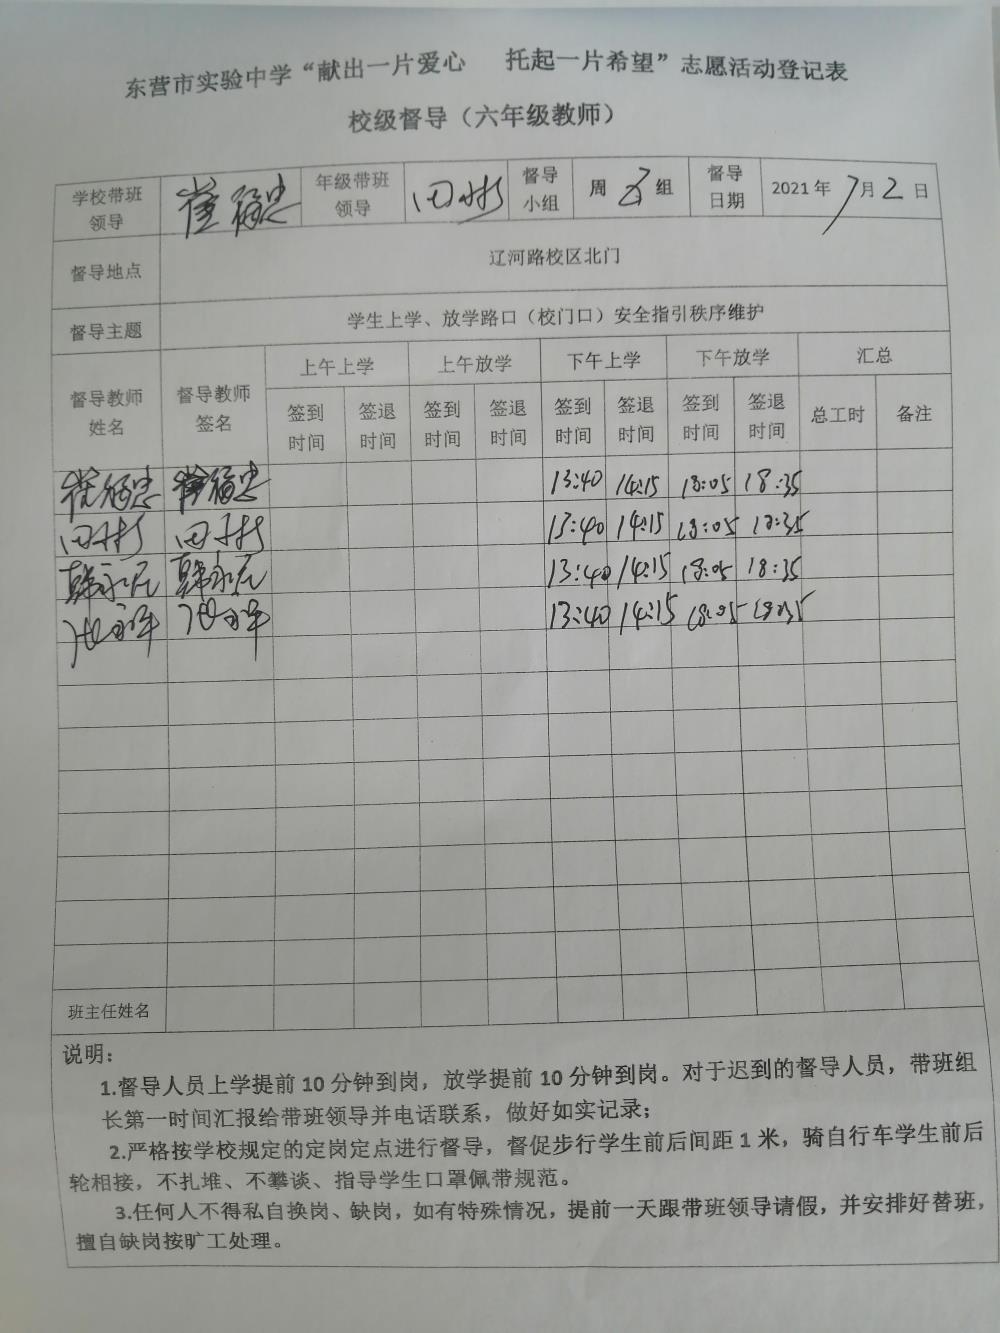 东营市实验中学“献出一片爱心 托起一片希望”志愿活动登记表
校级督导（六年级教师）
学校带班领导 崔福忠 年级带班领导 田彬 督导小组 周 五 组 督导日期 2021年7月2日
督导地点 辽河路校区北门
督导主题 学生上学、放学路口（校门口）安全指引秩序维护
督导教师姓名 督导教师签名 上午上学 上午放学 下午上学 下午放学 汇总
签到时间 签退时间 签到时间 签退时间 签到时间 签退时间 签到时间 签退时间 总工时 备注
崔福忠 崔福忠 13:40 14:15 18:05 18:35
田彬 田彬 13:40 14:15 18:05 18:35
韩永 韩永 13:40 14:15 18:05 18:35
13:40 14:15 18:05 18:35
班主任姓名
说明：
1.督导人员上学提前10分钟到岗，放学提前10分钟到岗。对于迟到的督导人员，带班组
长第一时间汇报给带班领导并电话联系，做好如实记录；
2.严格按学校规定的定岗定点进行督导，督促步行学生前后间距1米，骑自行车学生前后
轮相接，不扎堆、不攀谈、指导学生口罩佩带规范。
3.任何人不得私自换岗、缺岗，如有特殊情况，提前一天跟带班领导请假，并安排好替班，
擅自缺岗按旷工处理。